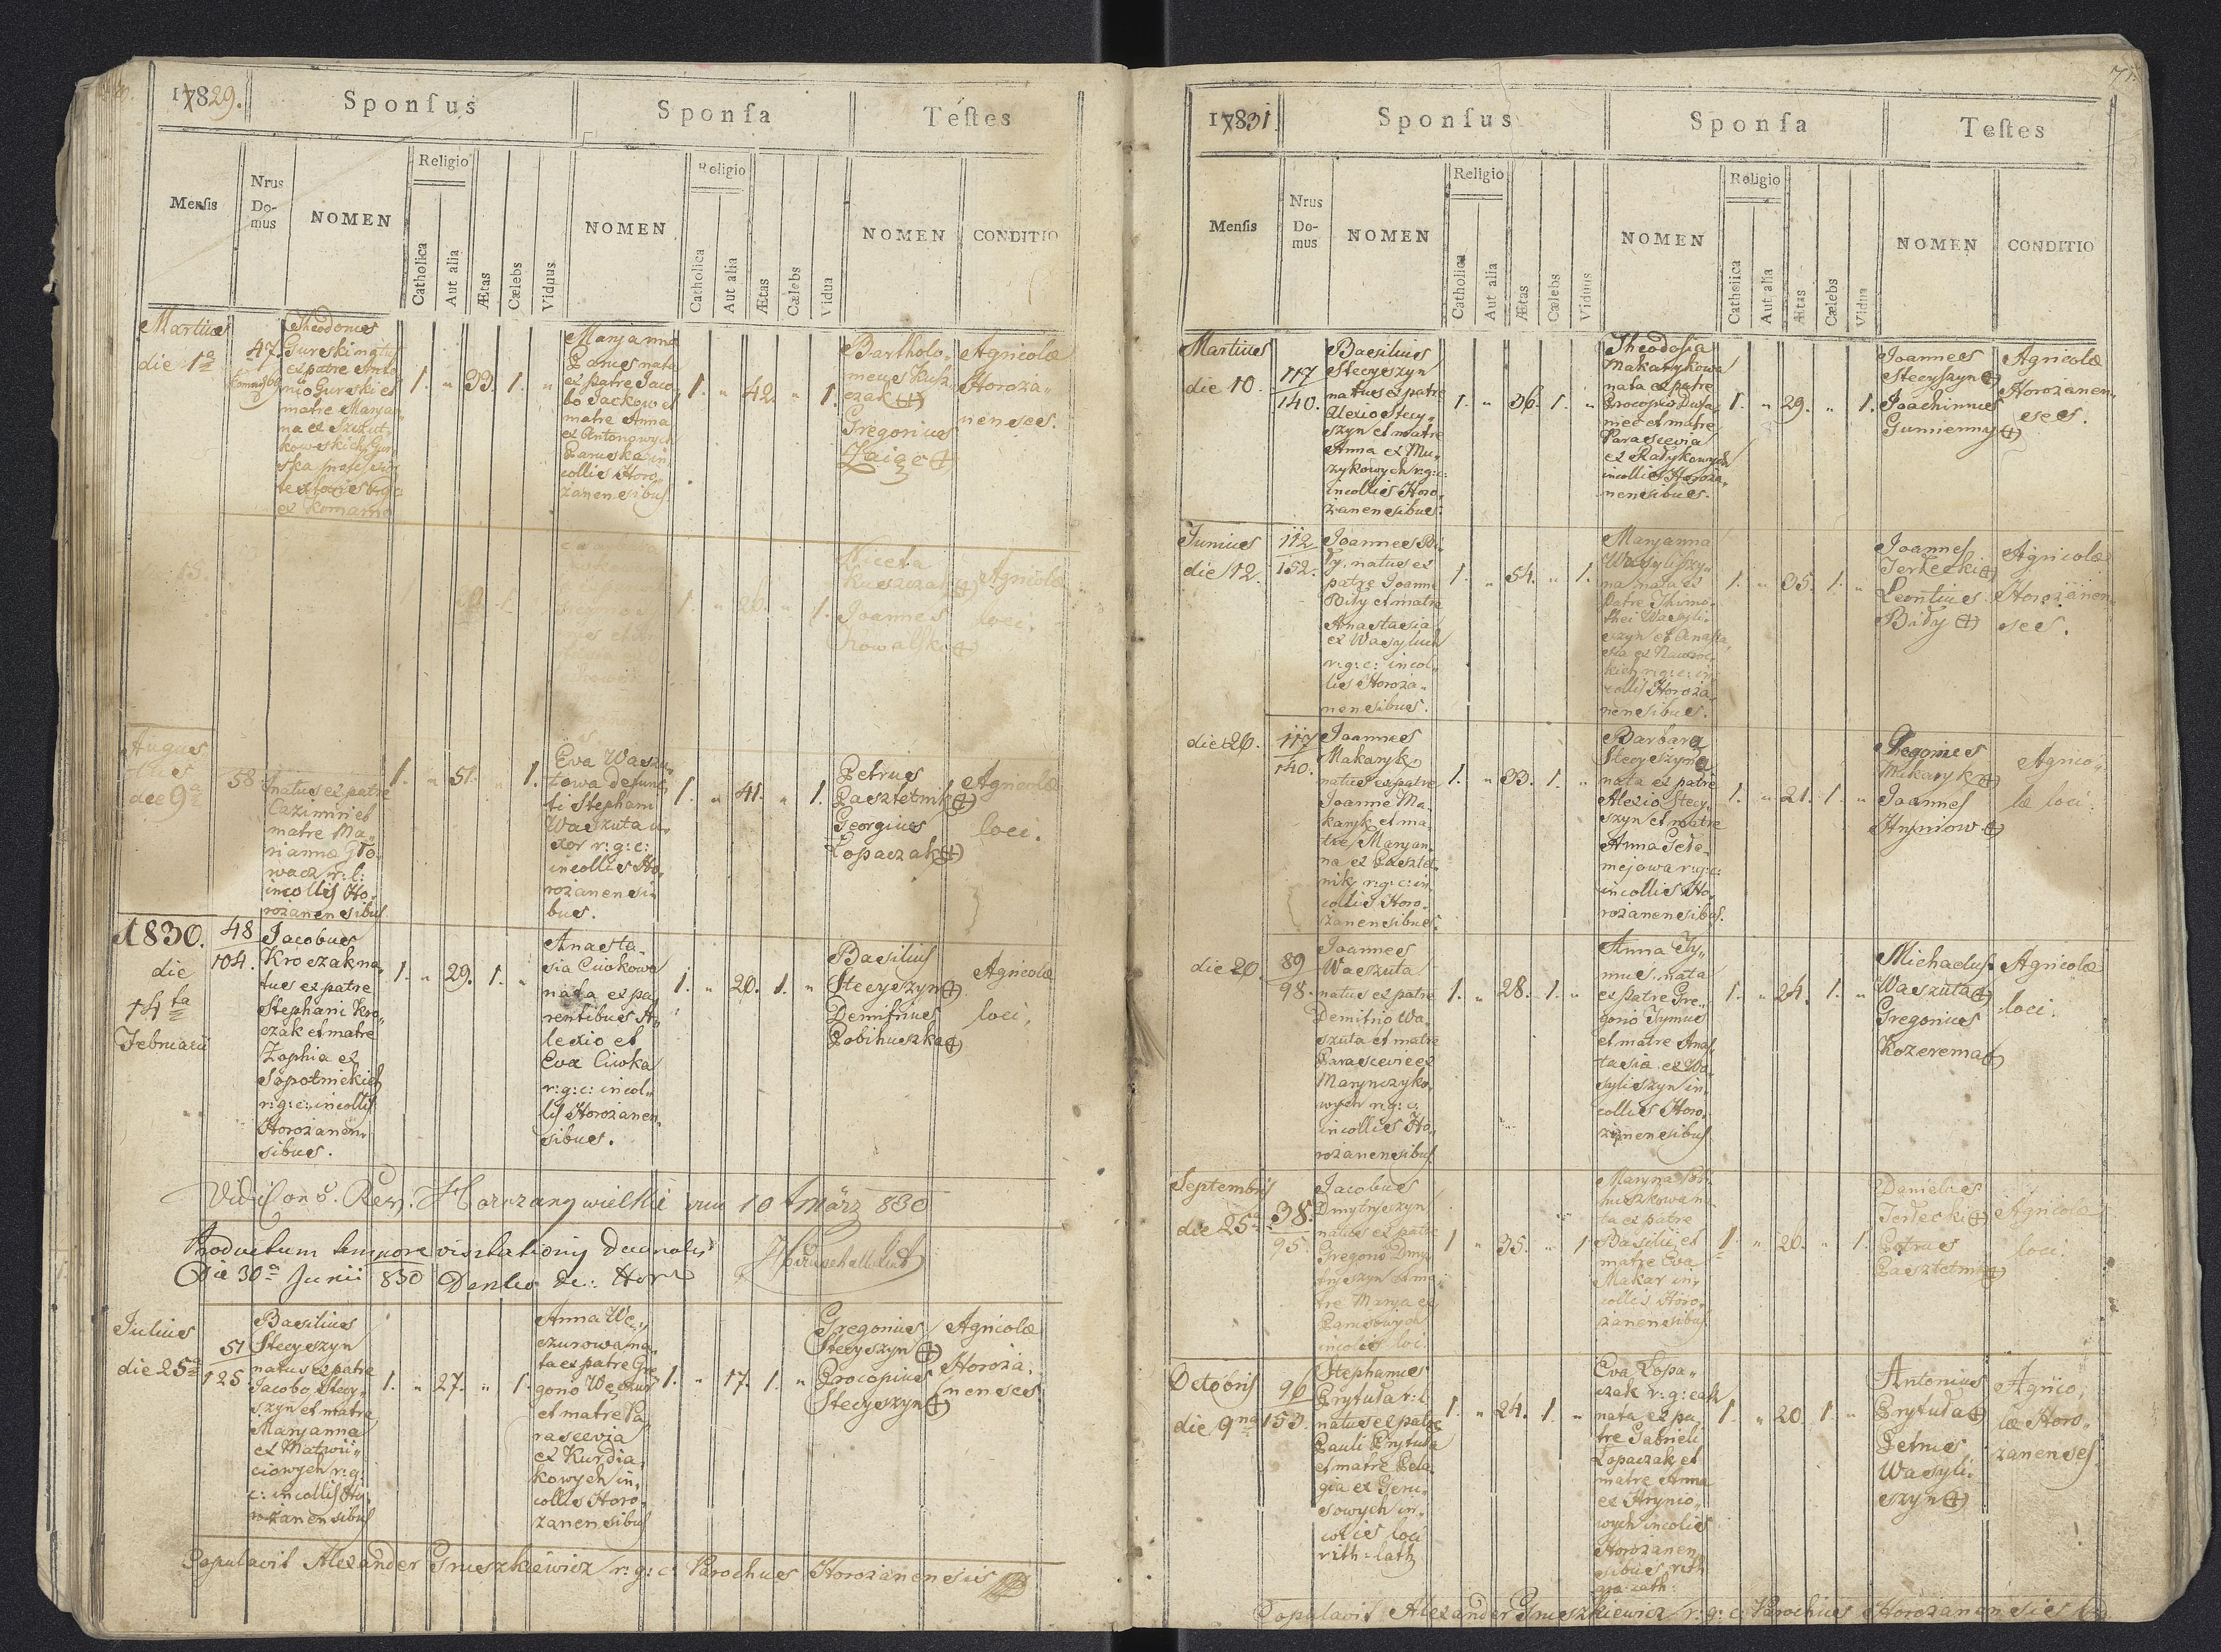 17829.
Sponſus
Sponſa
Teſtes
Menſis
Nrus
Do-
mus
NOMEN
Religio
Catholica
Aut alia
Ætas
Cælebs
Viduus
NOMEN
Religio
Catholica
Aut alia
Ætas
Cælebs
Vidua
NOMEN
CONDITIO
Martius
die 1ª
47.
Theodorus
Gureski natus
ex patre Anto
nio Gureski et
matre Maryan
na ex
ex Komarno
1. „ 33. 1. „
Maryanna
nata
ex patre Jaco
bo Jackow et
matre Anna
ex Antonowych
incollis Horo„
żanensibus
1. „ 42. „ 1.
Bartholo„
meus Kusz„
czak (+)
Gregorius
Zaiąc (+)
Agricolæ
Horoża„
nenses.
die 15.
1. „
1. „ 26. „ 1.
Niceta
Kuszczak (+)
Joannes
Kowalski (+)
Agricolæ
loci.
Augus
tus
die 9ª
58
natus ex patre
Cazimiri et
matre Ma„
rianna Gło
wacz r: l:
incollis Ho„
rożanensibus
1. „ 51. „ 1.
Eva Waszu„
towa defunc
ti Stephani
Waszuta u„
xor r: g: c:
incollis Ho„
rożanensi
bus.
1. „ 41. „ 1.
Petrus
Pasztetnik (+)
Georgius
Łopaczak (+)
Agricolæ
loci.
1830.
die
14ta
Februarii
48
104.
Jacobus
Kroczak na„
tus ex patre
Stephani Kro„
czak et matre
Zophia ex
Sopotnickich
r: g: c: incollis
Horożanen„
sibus.
1. „ 29. 1. „
Anasta„
sia Ciwkowa
nata ex pa„
rentibus A„
lexio et
Eva Ciwka
r: g: c: incol„
lis Horożanen„
sibus.
1. „ 20. 1. „
Basilius
Stecyszyn (+)
Demitrius
Pobihuszka (+)
Agricolæ
loci.
10 März 830
Productum tempore visitationis Decanalis
Die 30ª Junii 830
Julius
die 25ª
51
125
Basilius
Stecyszyn
natus ex patre
Jacobo Stecy„
szyn et matre
Maryanna
ex Matwii„
ciowych r: g:
c: incollis Ho„
rożanensibus
1. „ 27. „ 1.
Anna We„
czurowa na„
ta ex patre Gre
gorio Weczur
et matre Pa„
rascevia
ex Kurdia„
kowych in„
collis Horo„
żanensibus
1. „ 17. 1. „
Gregorius
Stecyszyn (+)
Procopius
Stecyszyn (+)
Agricolæ
Horoża„
nenses
Copulavit Alexander Gruszkiewicz r: g: c: Parochus Horożanensis
71.
17831.
Sponſus
Sponſa
Teſtes
Menſis
Nrus
Do-
mus
NOMEN
Religio
Catholica
Aut alia
Ætas
Cælebs
Viduus
NOMEN
Religio
Catholica
Aut alia
Ætas
Cælebs
Vidua
NOMEN
CONDITIO
Martius
die 10.
117
140.
Basilius
Stecyszyn
natus ex patre
Alexio Stecy„
szyn et matre
Anna ex Mu„
zykowych r: g: c:
incollis Horo„
żanensibus.
1. „ 36. 1. „
Theodosia
Makarykowa
nata ex patre
Procopio
et matre
Parascevia
ex Radykowych
incollis Horoża„
nensibus.
1. „ 29. „ 1.
Joannes
Stecyszyn (+)
Joachimus
Gumienny (+)
Agricolæ
Horożanen„
ses.
Junius
die 12.
112
152.
Joannes Bi„
ły, natus ex
patre Joanne
Biły et matre
Anastasia
ex Wasyluch
r: g: c: incol„
lis Horoża„
nensibus.
1. „ 54. „ 1.
Maryanna
Wasyliszy„
na nata ex
patre Thimo„
thei Wasyli„
szyn et Anasta
sia ex
r: g: c: in
collis Horoża„
nensibus.
1. „ 35. 1. „
Joannes
Terlecki (+)
Leontius
Biły (+)
Agricolæ
Horożanen„
ses.
die 20.
117
140.
Joannes
Makaryk
natus ex patre
Joanne Ma„
karyk et ma„
tre Maryan„
na ex Pasztet„
nik r: g: c: in„
collis Horo„
żanensibus.
1. „ 33. 1. „
Barbara
Stecyszyna
nata ex patre
Alexio Stecy„
szyn et matre
Anna
r: g: c:
incollis Ho„
rożanensibus.
1. „ 21. 1. „
Gregorius
Makaryk (+)
Joannes
Hryniow (+)
Agrico„
læ loci.
die 20.
89
98.
Joannes
Waszuta
natus ex patre
Demitrio Wa„
szuta et matre
Parascevie ex
Marynczyko„
wych r: g: c:
incollis Ho„
rożanensibus
1. „ 28. 1. „
Anna Ty„
mus, nata
ex patre Gre„
gorio Tymus
et matre Anas„
tasia ex Wa„
syliszyn in„
collis Horo„
żanensibus
1. „ 24. 1. „
Michaelus
Waszuta (+)
Gregorius
Kozerema (+)
Agricolæ
loci.
Septembris
die 25ª
38.
95.
Jacobus
Dmytryszyn
natus ex patre
Gregorio Dmy„
tryszyn et ma„
tre Marya ex
incolis loci.
1 „ 35. „ 1
Maryna Pobi
huszkowa na
ta ex patre
Basilii et
matre Eva
Makar in„
collis Horo„
żanensibus
1. „ 26. „ 1.
Daniel
Terlecki (+)
Petrus
Pasztetnik (+)
Agricolæ
loci.
Octobris
die 9na
96
153.
Stephanus
Prytuła r: l:
natus ex patre
Pauli Prytuła
et matre Pela„
gia ex
in„
colis loci
rith: lath
1. „ 24. 1. „
Eva Łopa„
czak r: g: cath
nata ex pa„
tre Gabrieli
Łopaczak et
matre Anna
ex Hrynio„
wych incolis
Horożanen„
sibus rith
græ: cath:
1. „ 20 1. „
Antonius
Prytuła (+)
Petrus
Wasyli„
szyn (+)
Agrico„
læ Horo„
żanenses.
Copulavit Alexander Gruszkiewicz r: g: c: Parochus Horożanensis